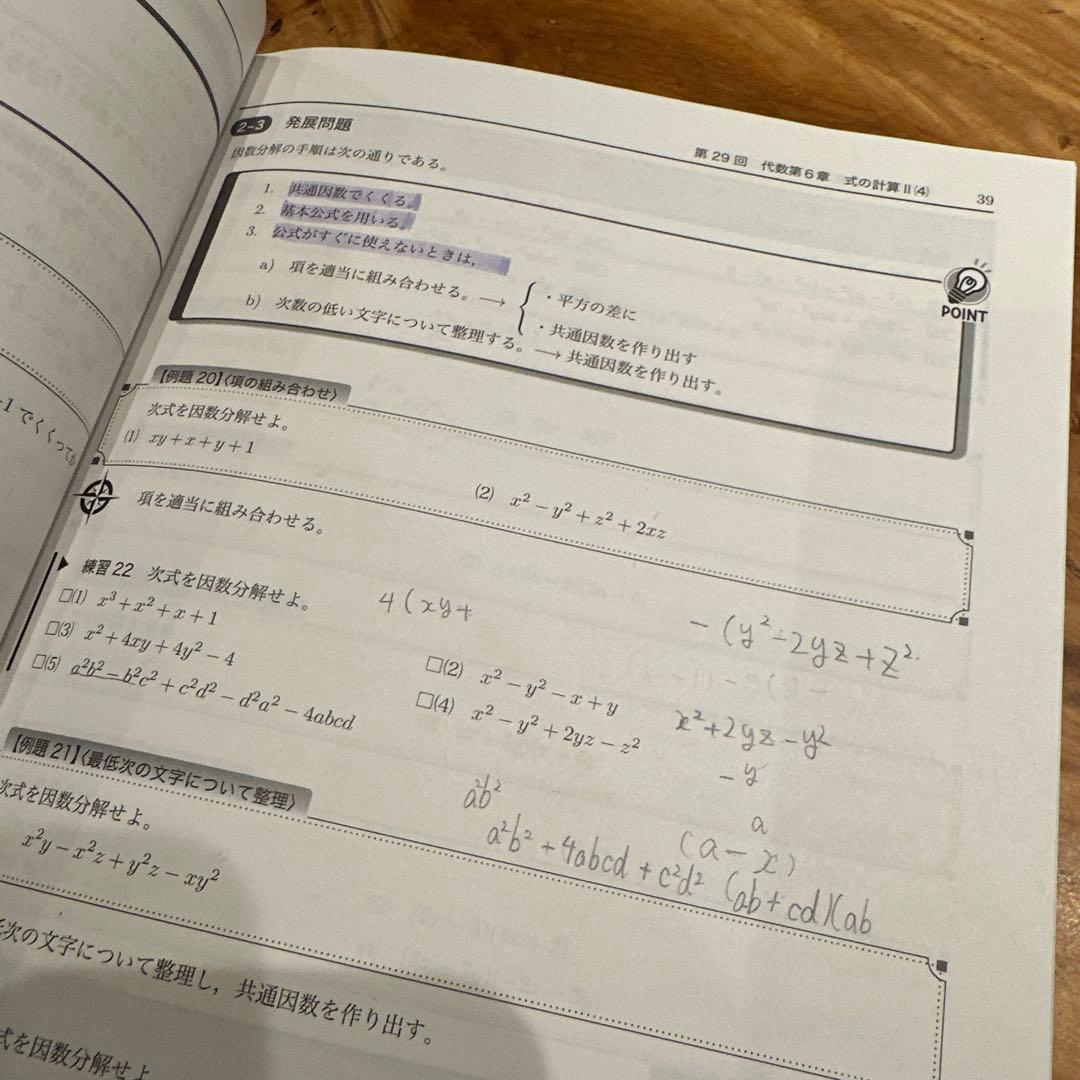 -1 でくくって
2-3 発展問題
第29回 代数第6章 式の計算Ⅱ(4) 39
因数分解の手順は次の通りである。
1. 共通因数でくくる。
2. 基本公式を用いる。
3. 公式がすぐに使えないときは,
a) 項を適当に組み合わせる。→ { ・平方の差に
・共通因数を作り出す
b) 次数の低い文字について整理する。→ 共通因数を作り出す。
POINT
【例題20】〈項の組み合わせ〉
次式を因数分解せよ。
(1) xy+x+y+1
(2) x²-y²+z²+2xz
項を適当に組み合わせる。
練習22 次式を因数分解せよ。
4(xy+
-(y²-2yz+z²
□(1) x³+x²+x+1
□(2) x²-y²-x+y
□(3) x²+4xy+4y²-4
□(4) x²-y²+2yz-z²
x²+2yz-y²
-y
□(5) a²b²-b²c²+c²d²-d²a²-4abcd
a²b²
a
(a-x)
a²b²+4abcd+c²d² (ab+cd)(ab
【例題21】〈最低次の文字について整理〉
次式を因数分解せよ。
x²y-x²z+y²z-xy²
次の文字について整理し,共通因数を作り出す。
式を因数分解せよ